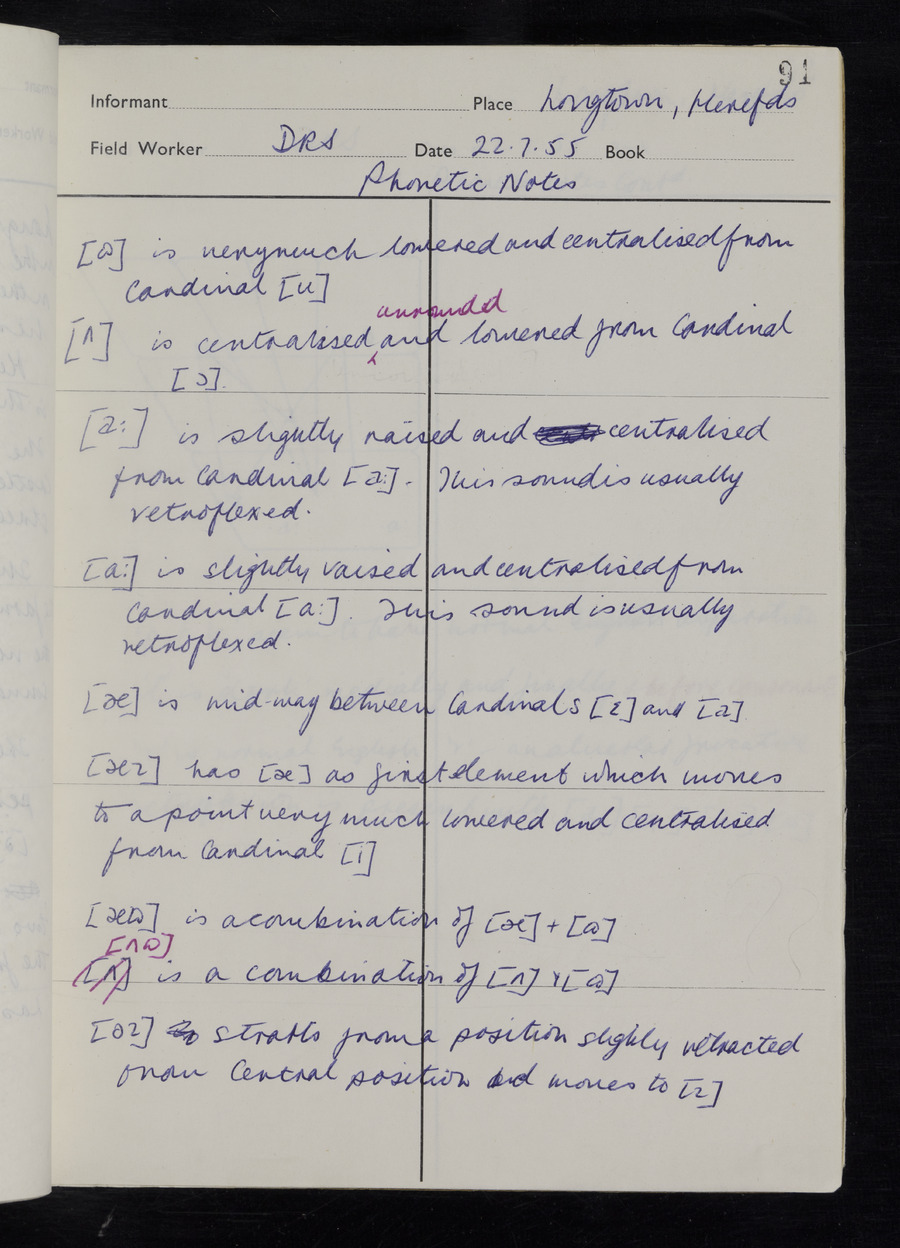 91
Informant Place Longtown, Herefds
Field Worker DRS Date 22.7.55 Book
Phonetic Notes
[ɷ] is very much lowered and centralised from
Cardinal [u]
unrounded
[ʌ] is centralised and lowered from Cardinal
[ɔ].
[a:] is slightly raised and centralised
from Cardinal [a:]. This sound is usually
retroflexed.
[ɑ:] is slightly raised and centralised from
Cardinal [ɑ:]. This sound is usually
retroflexed.
[æ] is mid-way between Cardinals [ɛ] and [a]
[æɪ] has [æ] as first element which moves
to a point very much lowered and centralised
from Cardinal [i]
[æɷ] is a combination of [æ] + [ɷ]
[ʌɷ]
[ʌ] is a combination of [ʌ] + [ɷ]
[əɪ] stratts from a position slighly retracted
from Central position and moves to [ɪ]